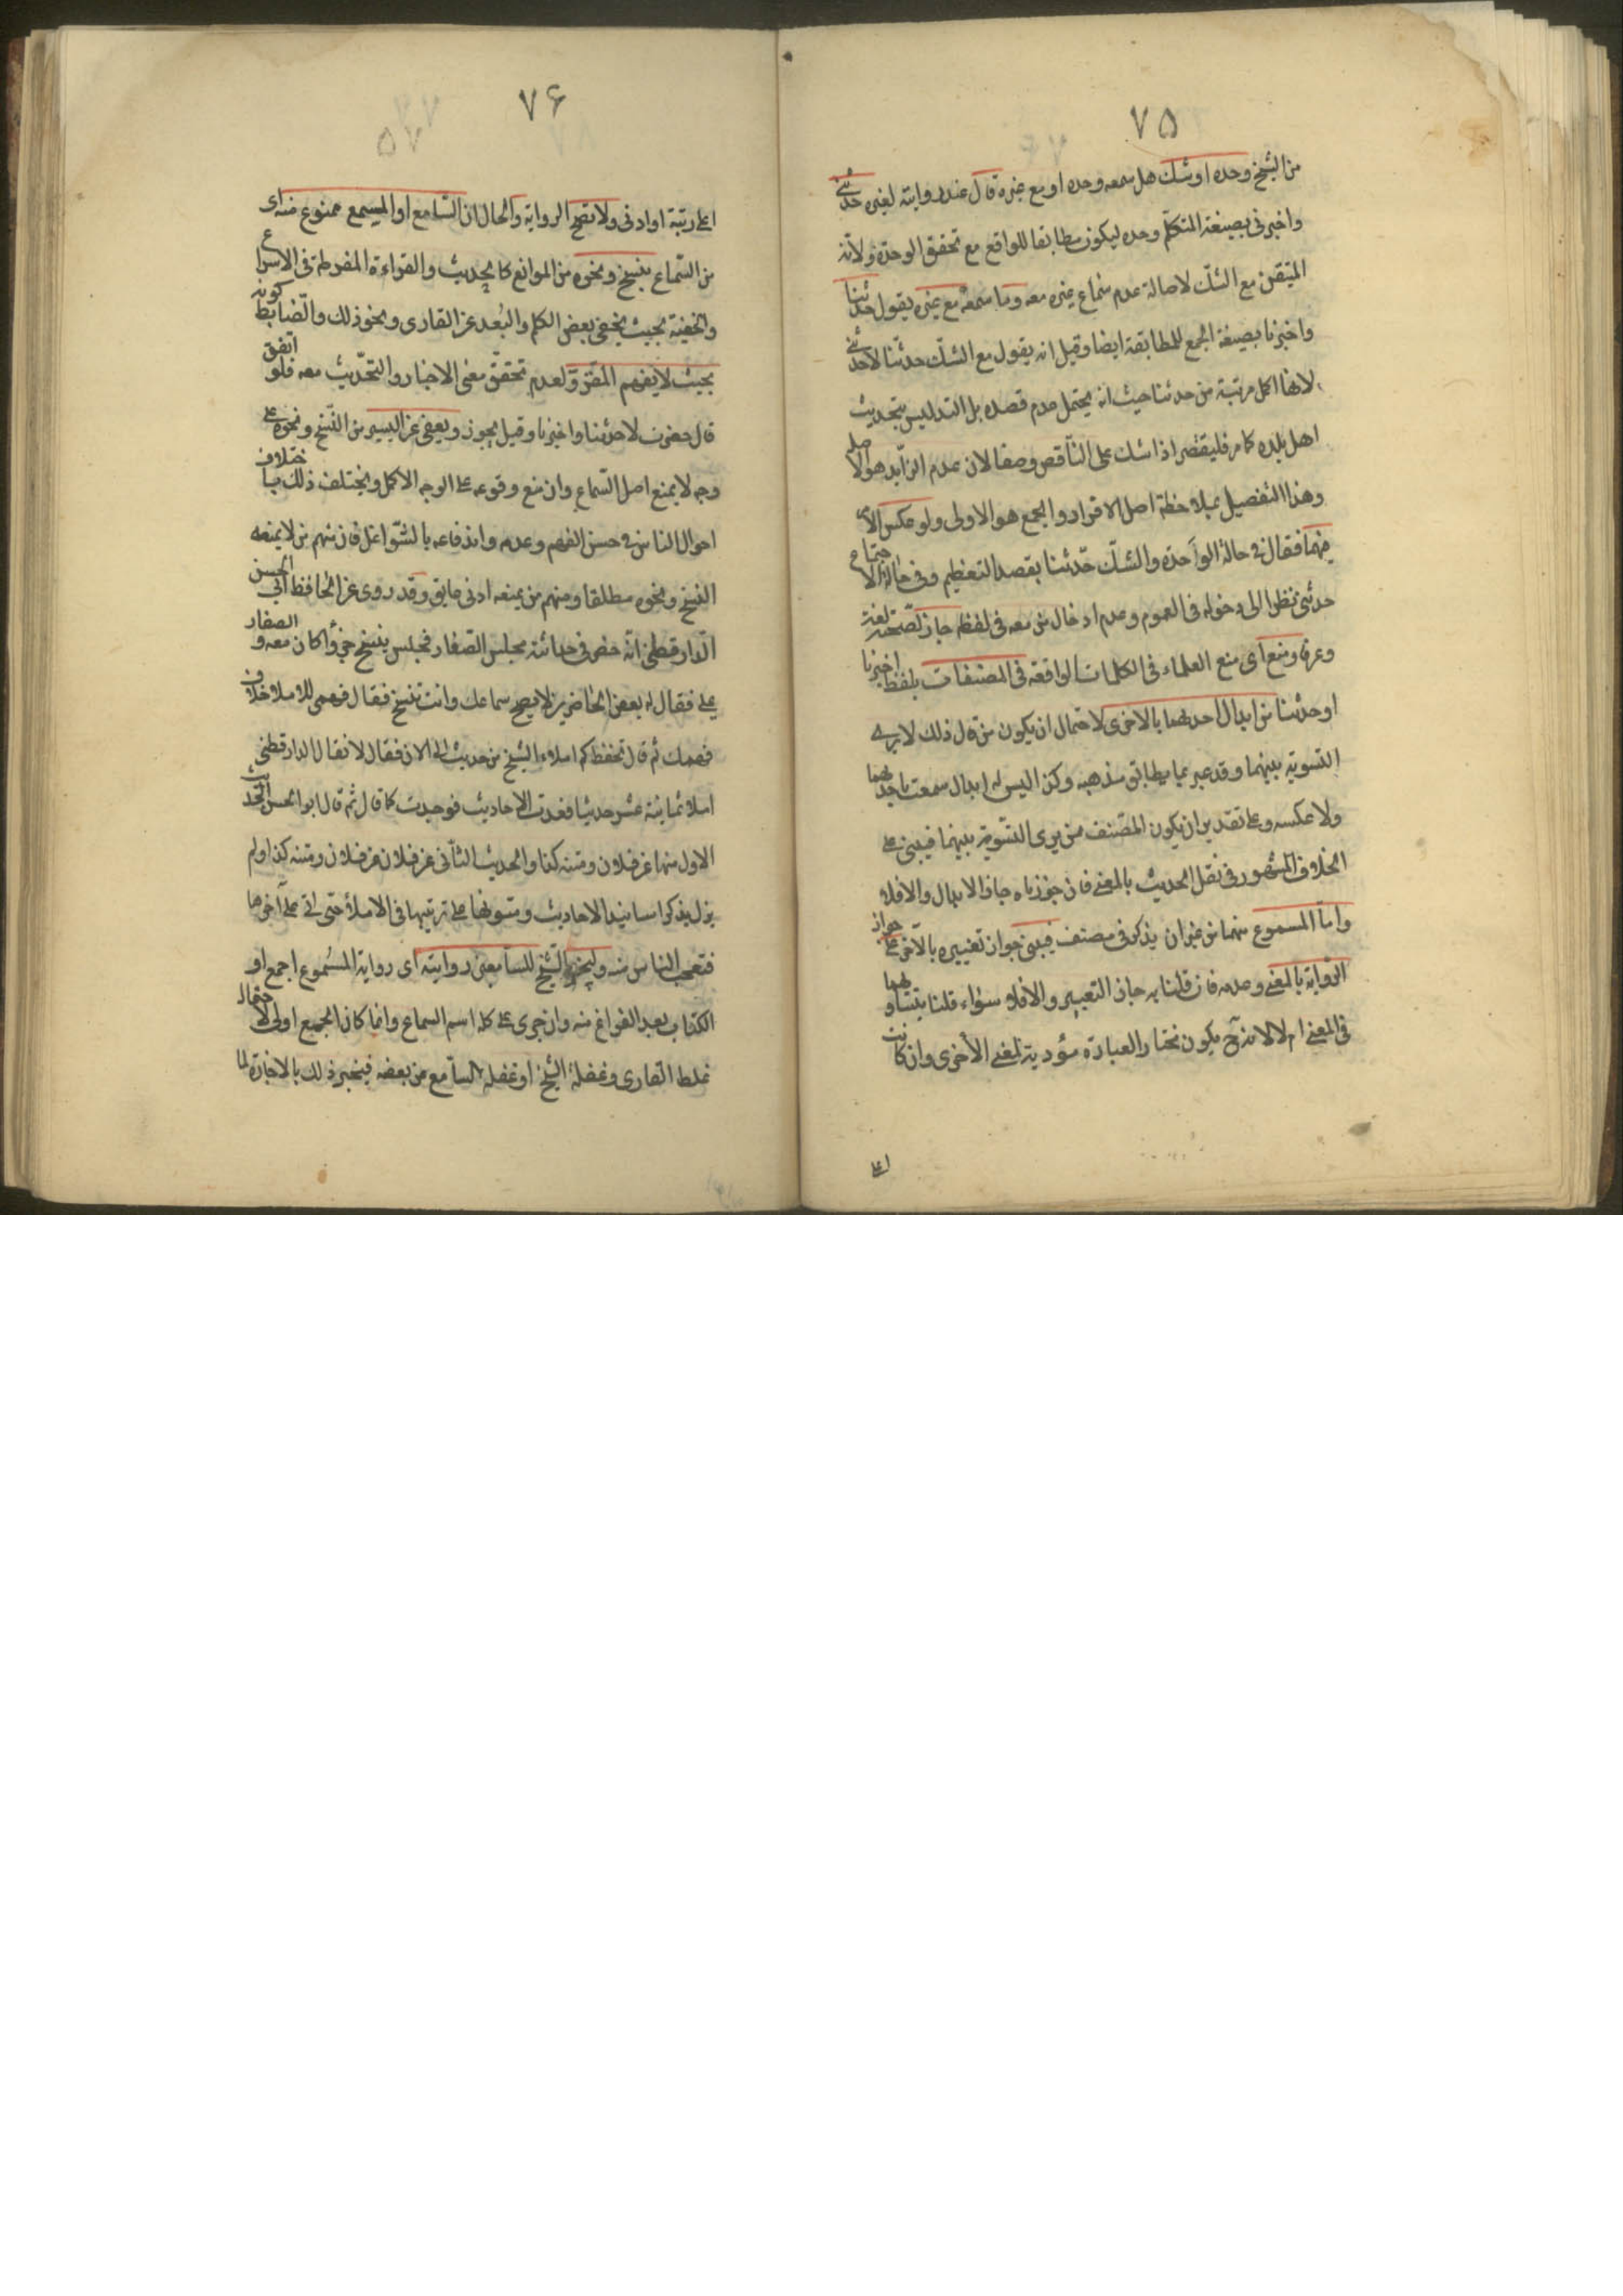 ٧۵
من الشيخ وحده او شك هل سمعه وحده او مع غيره قال عند روايته لغيره حدثني
واخبرني بصيغة المتكلم وحده ليكون مطابقا للواقع مع تحقق الوحدة ولانه
المتيقن مع الشك لاصالة عدم سماع غيره معه وما سمعه مع غيره يقول حدثنا
واخبرنا بصيغة الجمع للمطابقة ايضا وقيل انه يقول مع الشك حدثنا لا حدثني
لانها اكمل مرتبة من حدثنا حيث انه يحتمل عدم قصده بل التدليس بتحديث
اهل بلده كما مر فليقتصر اذا شك على الناقص وصفا لان عدم الزايد هو الاصل
وهذا التفصيل بملاحظة اصل الافراد والجمع هو الاولى ولو عكس الامر
فيهما فقال في حالة الواحدة والشك حدثنا بقصد التعظيم وفي حالة الاجتماع
حدثني نظرا الى دخوله في العموم وعدم ادخال من معه في لفظه جاز لصحته لغة
وعرفا ومنع اى منع العلماء في الكلمات الواقعة في المصنفات بلفظ اخبرنا
او حدثنا من ابدال احدهما بالاخرى لاحتمال ان يكون من قال ذلك لا يرى
التسوية بينهما وقد عبر بما يطابق مذهبه وكذا ليس له ابدال سمعت باحدهما
ولا عكسه وعلى تقدير ان يكون المصنف ممن يرى التسوية بينهما فيبنى على
الخلاف المشهور في نقل الحديث بالمعنى فان جوزناه جاز الابدال والا فلا
واما المسموع منهما من غير ان يذكر في مصنف فيبنى جواز تغييره بالاخر على جواز
الرواية بالمعنى وعدمه فان قلنا به جاز التعبير والا فلا سواء قلنا بتساويهما
في المعنى ام لا لانه ح يكون نختار العبارة مؤدية لمعنى الأخرى وان كانت
اعلى
٧۶
اعلى رتبة او ادنى ولا تصح الرواية والحال ان السامع او المسمع ممنوع منه اى
من السماع بنسخ ونحوه من الموانع كالحديث والقراءة المفرطة في الاسراع
والخفية بحيث يخفى بعض الكلم والبُعد عن القارى ونحو ذلك والضابط كونه
بحيث لا يفهم المقرو لعدم تحقق معنى الاخبار والتحديث معه فلو اتفق
قال حضرت لا حدثنا واخبرنا وقيل يجوز ويعفى عن اليسير من النسخ ونحوه على
وجه لا يمنع اصل السماع وان منع وقوعه على الوجه الاكمل ويختلف ذلك باختلاف
احوال الناس في حسن الفهم وعدمه واندفاعه بالشواغل فان منهم من لا يمنعه
النسخ ونحوه مطلقا ومنهم من يمنعه ادنى عايق وقد روى عن الحافظ ابي الحسن
الدارقطني انه حضر في حداثته مجلس الصفار فجلس ينسخ جزأ كان معه والصفار
يملى فقال له بعض الحاضرين لا يصح سماعك وانت تنسخ فقال فهمى للاملا خلاف
فهمك ثم قال تحفظ كم املاء الشيخ من حديث الى الان فقال لا فقال الدارقطني
املا ثمانية عشر حديثا فعدت الاحاديث فوجدت كما قال ثم قال ابو الحسن الحديث
الاول منها عن فلان ومتنه كذا والحديث الثاني عن فلان عن فلان ومتنه كذا ولم
يزل يذكر اسانيد الاحاديث ومتونها على ترتيبها في الاملاء حتى اتى على آخرها
فتعجب الناس منه وليجز الشيخ للسامعين روايته اى رواية المسموع اجمع او
الكتاب بعد الفراغ منه وان جرى على كله اسم السماع وانما كان الجميع اولى لاحتمال
غلط القارى وغفلة الشيخ او غفلة السامع عن بعضه فينجبر ذلك بالاجازة لما